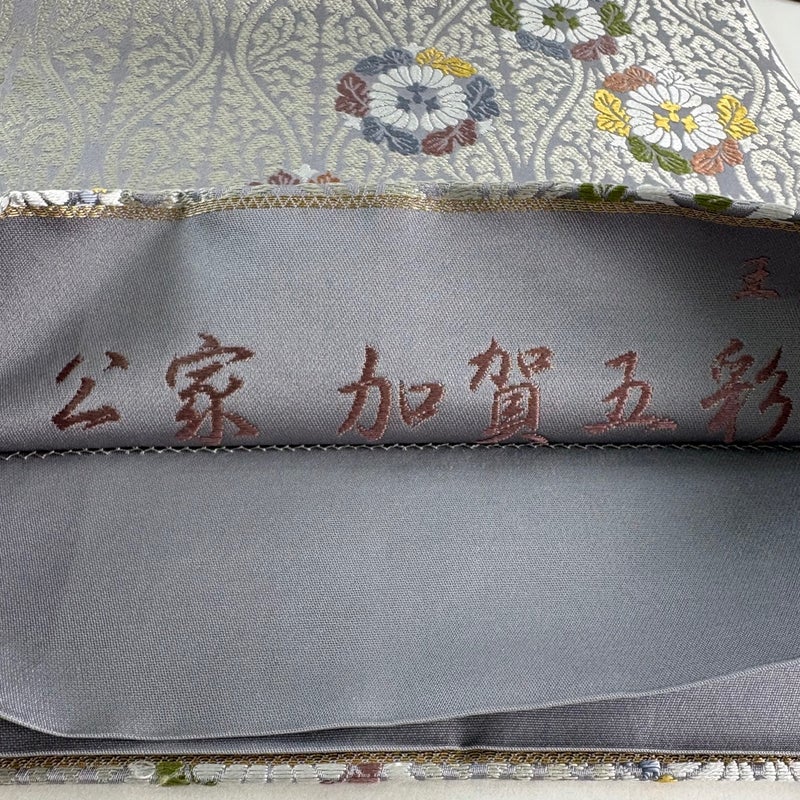 公家 加賀五彩